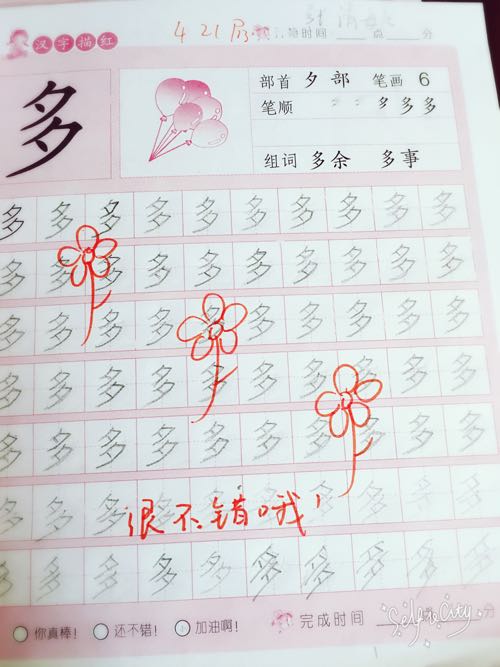 汉字描红 4 21 间 时间 点 分
多 部首 夕 部 笔画 6
笔顺 夕 多 多
组词 多余 多事
多 多 多 多 多 多 多 多 多
多 多 多 多 多 多 多 多 多
多 多 多 多 多 多 多 多 多
多 多 多 多 多 多 多 多 多
多 多 多 多 多 多 多 多 多
多 多 多 多 多 多 多 多 多
很不错哦!
多 多 多 多 多 多 多 多 多
你真棒! 还不错! 加油啊! 完成时间 分
Self in City